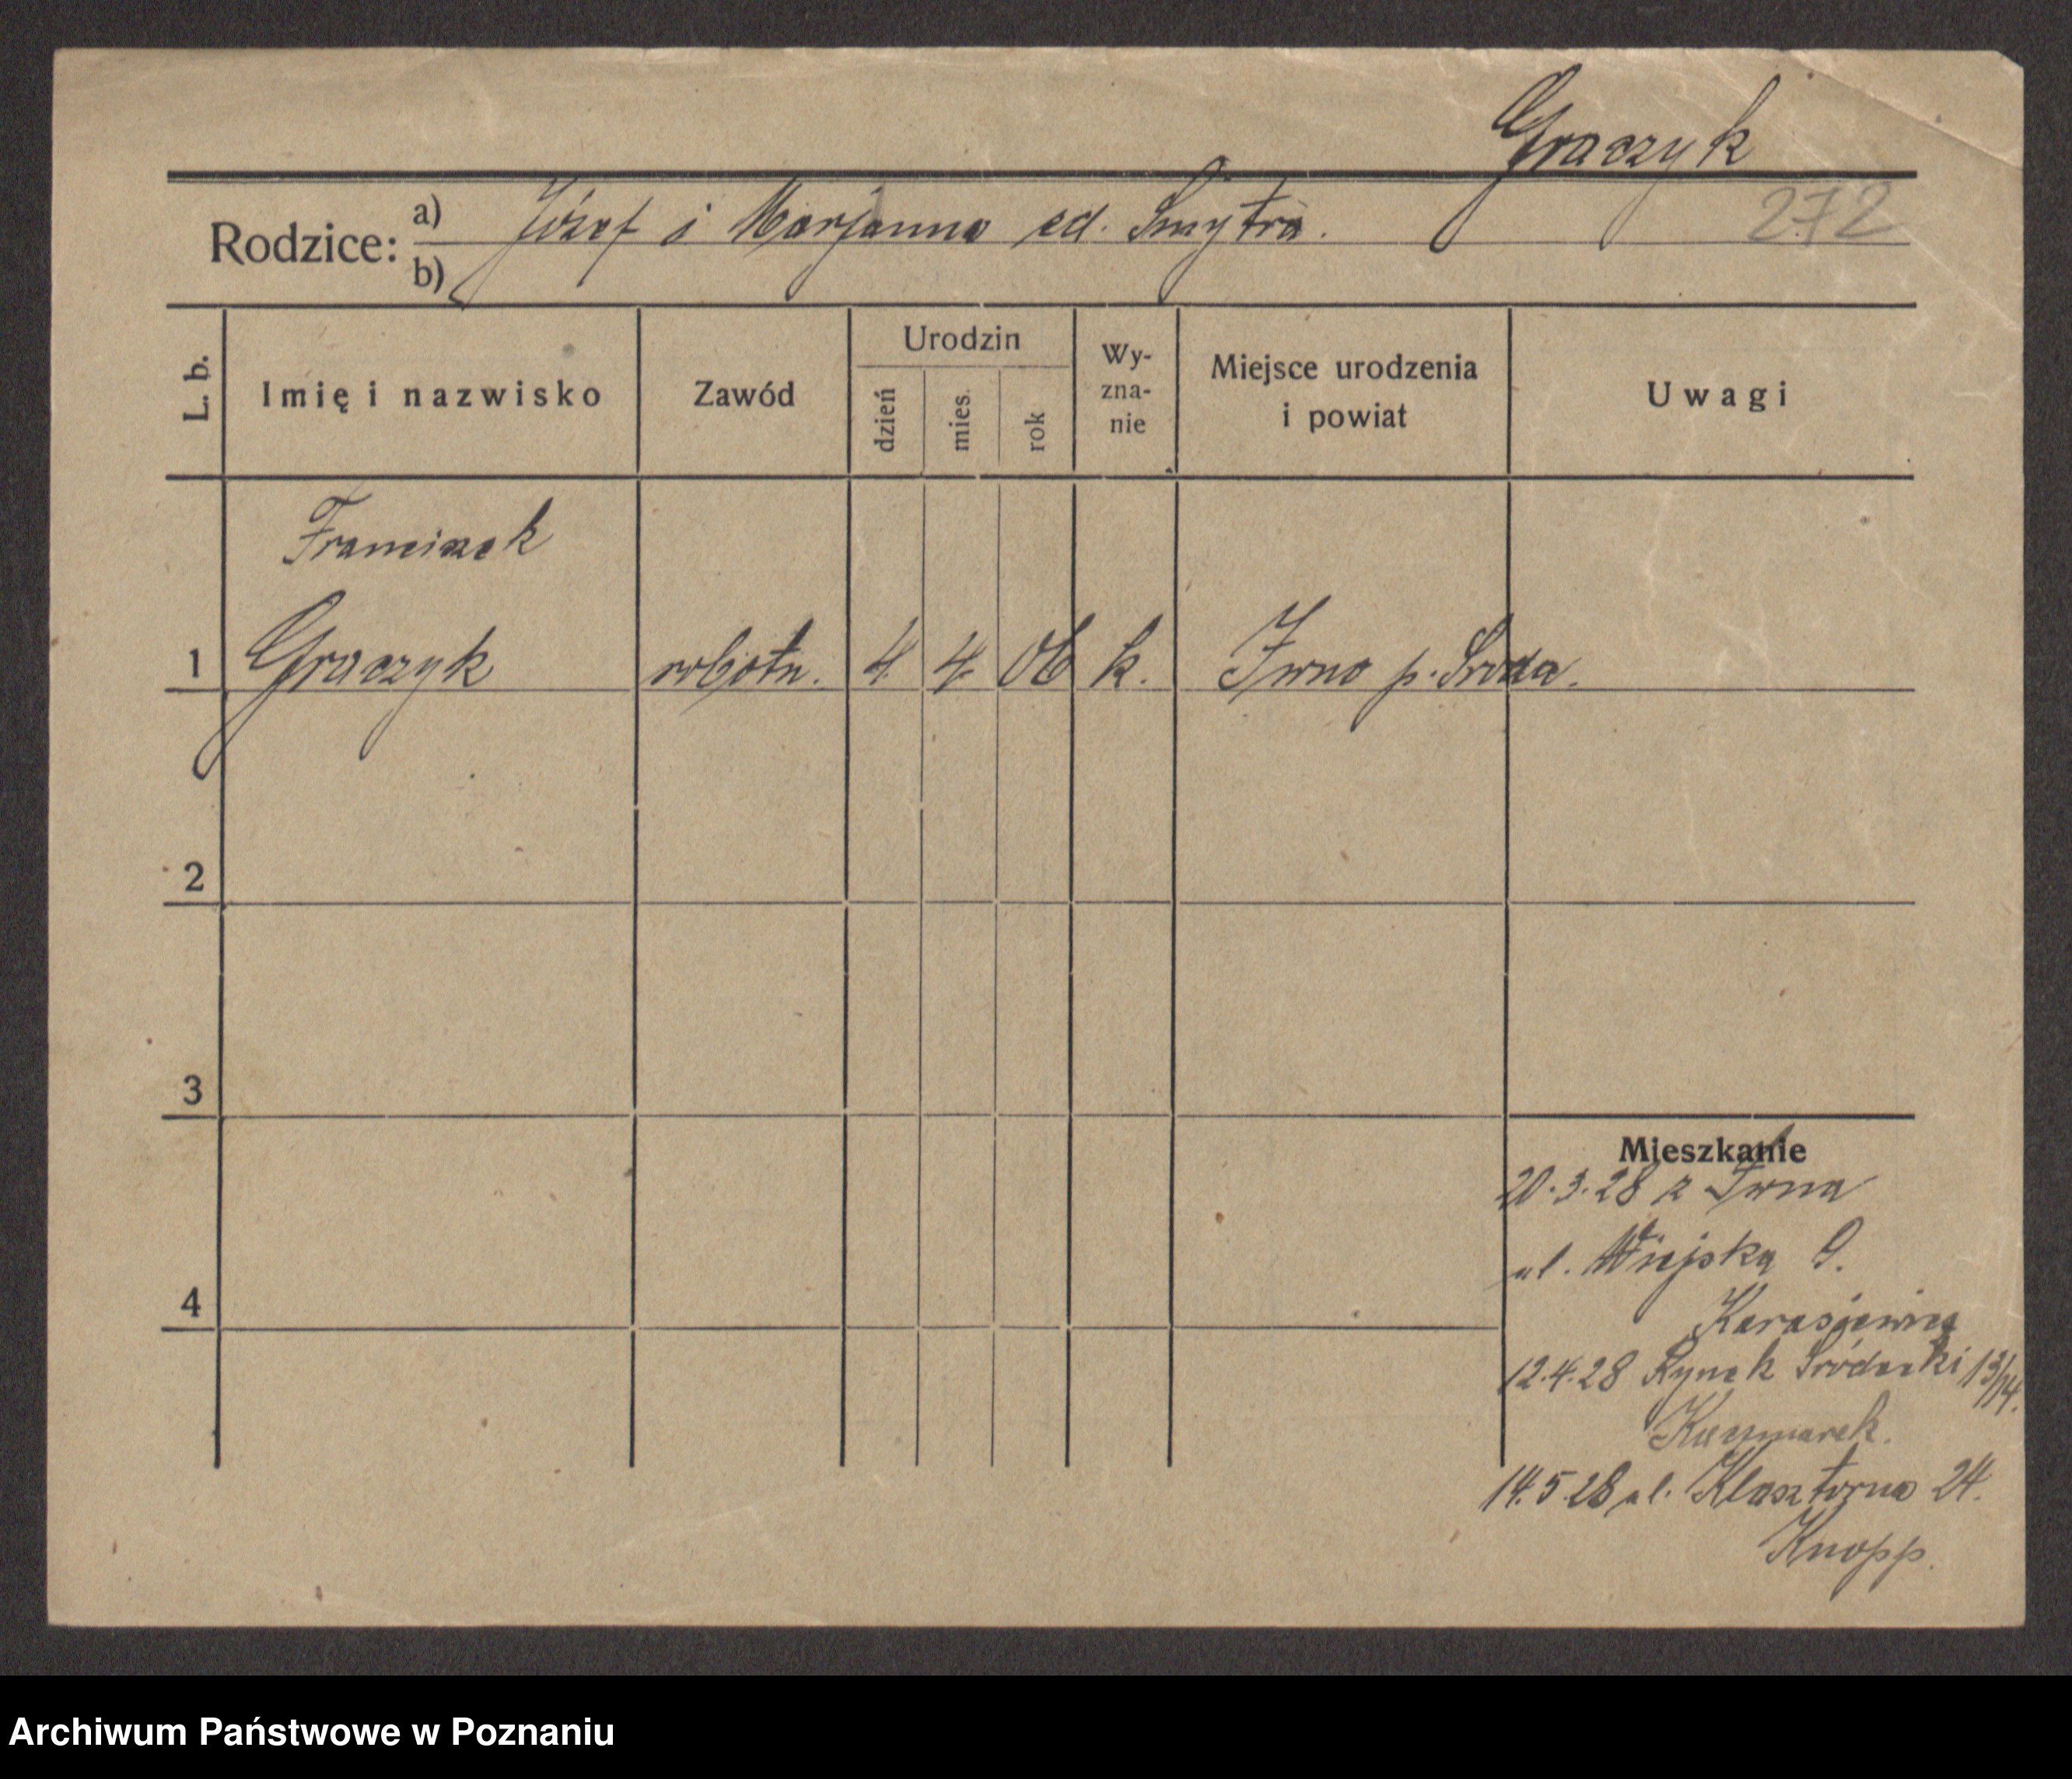 Graczyk
272
Rodzice: a) Józef i Marjanna cd. Smytra.
b)
L. b. Imię i nazwisko Zawód Urodzin dzień mies. rok Wy-zna-nie Miejsce urodzenia i powiat Uwagi
Franciszek
1 Graczyk robotn. 4 4 06 k. Iwno p. Środa.
2
3
Mieszkanie
20.3.28 z Iwna
ul. Wiejska 9.
4
Karasiewicz
12.4.28 Rynek Śródecki 13/14.
Kaczmarek.
14.5.28 ul. Klasztorna 24.
Knopp.
Archiwum Państwowe w Poznaniu